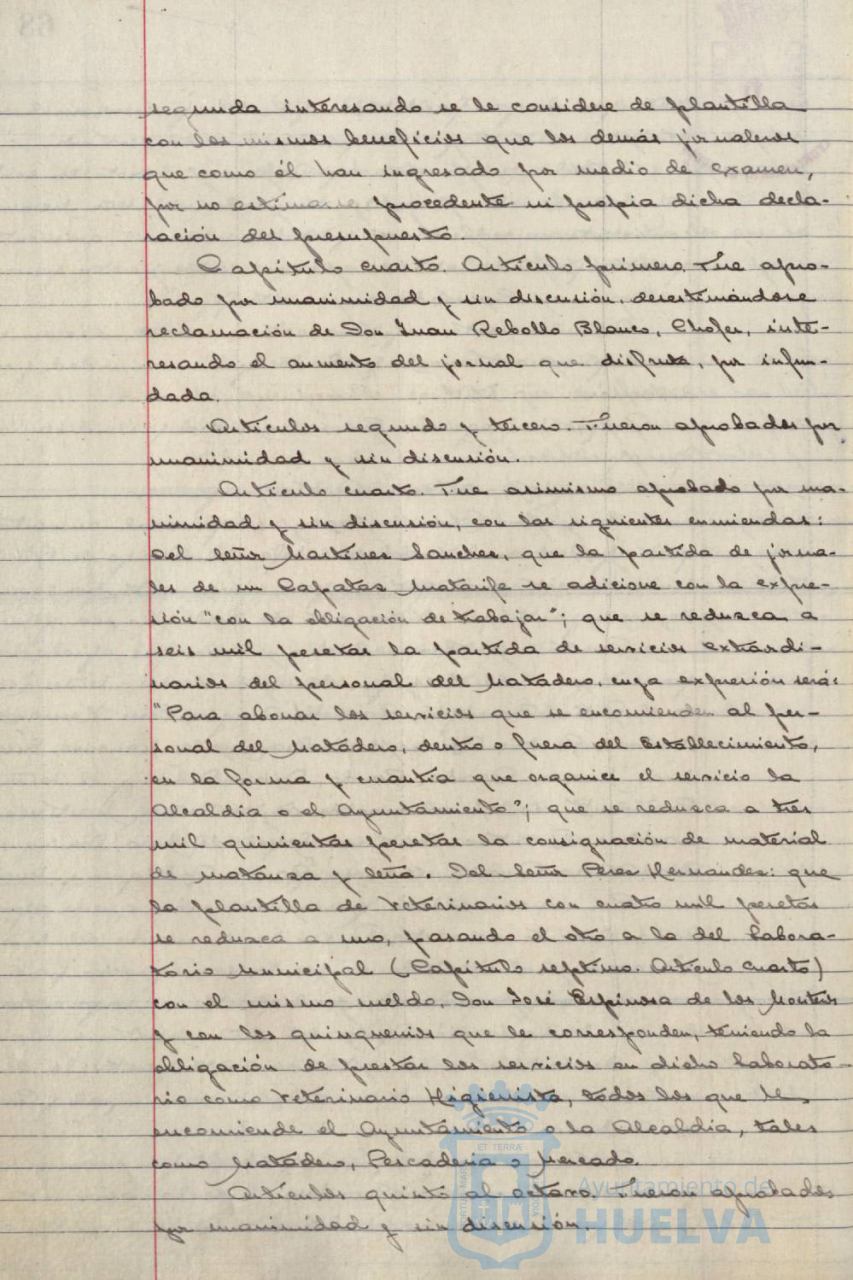 segunda interesando se le considere de plantilla
con los mismos beneficios que los demás jornaleros
que como él han ingresado por medio de examen,
por no estimarse procedente ni propia dicha decla-
ración del presupuesto.
Capítulo cuarto. Artículo primero. Fue apro-
bado por unanimidad y sin discusión, desestimándose
reclamación de Don Juan Rebollo Blanco, Chofer, inte-
resando el aumento del jornal que disfruta, por infun-
dada.
Artículos segundo y tercero. Fueron aprobados por
unanimidad y sin discusión.
Artículo cuarto. Fue asimismo aprobado por una-
nimidad y sin discusión, con las siguientes enmiendas:
Del señor Martínez Sanchez, que la partida de jorna-
les de un Capataz Matarife se adicione con la expre-
sión "con la obligación de trabajar"; que se reduzca a
seis mil pesetas la partida de servicios extraordi-
narios del personal del Matadero, cuya expresión será:
"Para abonar los servicios que se encomienden al per-
sonal del Matadero, dentro o fuera del Establecimiento,
en la forma y cuantía que organice el servicio la
Alcaldía o el Ayuntamiento"; que se reduzca a tres
mil quinientas pesetas la consignación de material
de matanza y leña. Del señor Perez Hernandez: que
la plantilla de Veterinarios con cuatro mil pesetas
se reduzca a uno, pasando el otro a la del Labora-
tório Municipal (Capítulo septimo. Artículo Cuarto)
con el mismo sueldo, Don José Espinosa de los Monteros
y con los quinquenios que le corresponden, teniendo la
obligación de prestar los servicios en dicho Laborato-
rio como Veterinario Higienista, todos los que le
encomiende el Ayuntamiento o la Alcaldía, tales
como Matadero, Pescadería o Mercado.
Artículos quinto al octavo. Fueron aprobados
por unanimidad y sin discusión.
ET TERRÆ
Ayuntamiento de
HUELVA